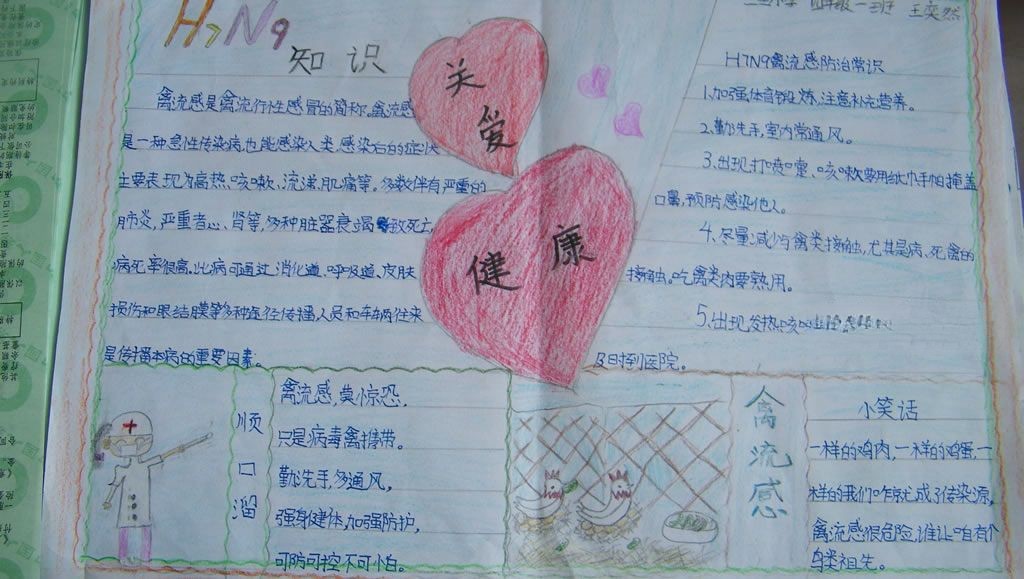 H7N9
知识
关
爱
健康
禽流感是禽流行性感冒的简称,禽流感
是一种急性传染病,也能感染人类,感染后的症状
主要表现为高热、咳嗽、流涕、肌痛等。多数伴有严重的
肺炎,严重者心、肾等,多种脏器衰竭致死亡,
病死率很高,此病可通过,消化道、呼吸道、皮肤
损伤和眼结膜等多种途径传播,人员和车辆往来
是传播本病的重要因素。
四年级一班 王奕然
H7N9禽流感防治常识
1.加强体育锻炼,注意补充营养。
2.勤洗手,室内常通风。
3.出现打喷嚏、咳嗽要用纸巾手帕掩盖
口鼻,预防感染他人。
4.尽量减少与禽类接触,尤其是病、死禽的
接触。吃禽类肉要熟用。
5.出现发热咳
及时到医院。
顺
口
溜
禽流感,莫惊恐,
只是病毒禽携带。
勤洗手,多通风,
强身健体,加强防护,
可防可控不可怕。
禽
流
感
小笑话
一样的鸡肉,一样的鸡蛋,一
样的我们咋就成了传染源,
禽流感很危险,谁让咱有个
鸟类祖先。